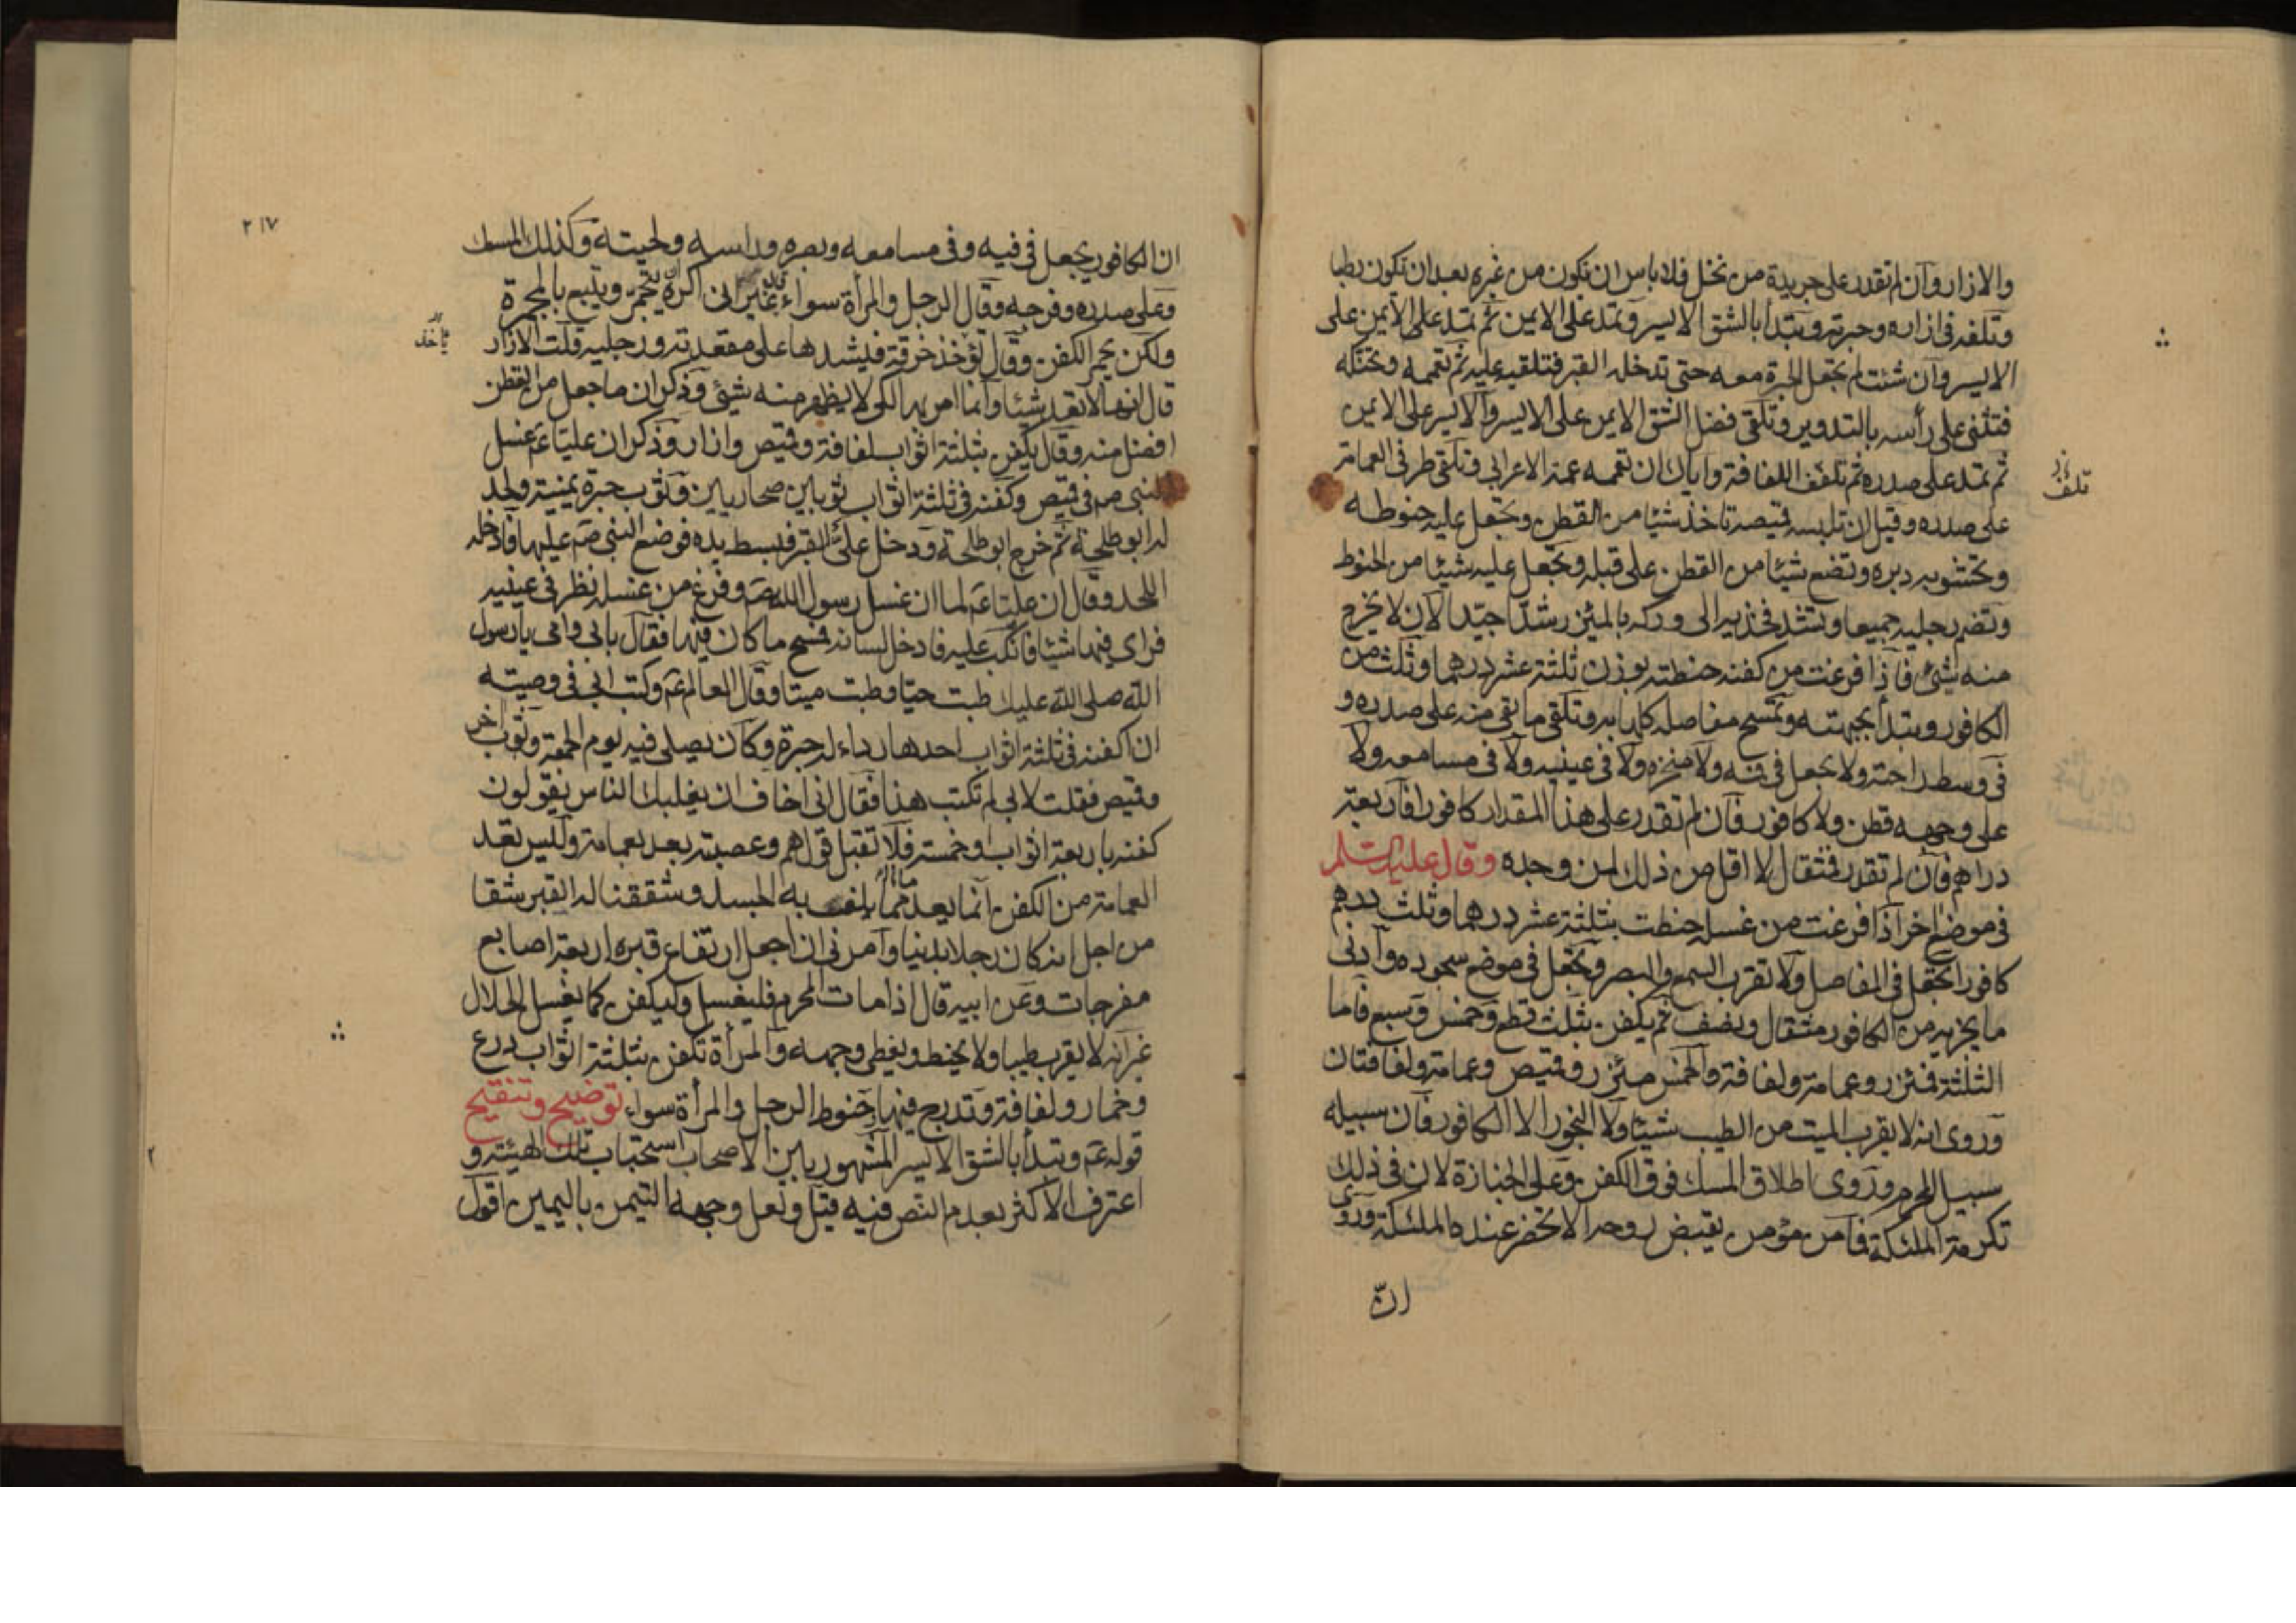 والازار وآن لم تقدر على جريدة من نخل فلا باس ان تكون من غيره بعد ان تكون رطبا
وتلفه فى ازاره وحبرته وتبدأ بالشق الايسر وتمد على الايمن ثم تمد على الايمن على
الايسر وآن شئت لم تجعل الحبرة معه حتى تدخله القبر فتلقيه عليه ثم تعممه وتحنكه
فتثنى على رأسه بالتدوير وتلقى فضل الشق الايمن على الايسر والايسر على الايمن
ثم تمد على صدره ثم تلفف اللفافة واياك ان تعممه عمة الاعرابى وتلقى طرفى العمامة
تلف
على صدره وقبل ان تلبسه قميصه تاخذ شيئا من القطن وتجعل عليه حنوطه
وتحشو به دبره وتضع شيئا من القطن على قبله وتجعل عليه شيئا من الحنوط
وتضم رجليه جميعا وتشد فخذيه الى وركه بالمئزر شدّا جيّدا لان لا يخرج
منه شئ فآذا فرغت من كفنه حنطته بوزن ثلثة عشر درهما وثلث من
الكافور وتبدأ بجبهته وتمسح مفاصله كلها به وتلقى ما بقى منه على صدره و
فى وسط راحته ولا تجعل فى فمه ولا منخره ولا فى عينيه ولا فى مسامعه ولا
على وجهه قطن ولا كافور فآن لم تقدر على هذا المقدار كافورا فاربعة
دراهم فآن لم تقدر فمثقال لا اقل من ذلك لمن وجده وقال عليه السلم
فى موضع اخر اذا فرغت من غسله حنطت بثلثة عشر درهما وثلث درهم
كافورا تجعل فى المفاصل ولا تقرب السمع والبصر وتجعل فى موضع سجوده وآدنى
ما يجزيه من الكافور مثقال ونصف ثم يكفن بثلث قطع وخمس وسبع فاما
الثلثة فمئزر وعمامة ولفافة والخمس مئزر وقميص وعمامة ولفافتان
وروى انه لا يقرب الميت من الطيب شيئا ولا البخور الا الكافور فآن سبيله
سبيل المحرم وروى اطلاق المسك فوق الكفن وعلى الجنازة لان فى ذلك
تكرمة الملئكة فما من مؤمن يقبض روحه الا تحضر عنده الملئكة وروى
انّ
٢١٧
ان الكافور يجعل فى فيه وفى مسامعه وبصره وراسه ولحيته وكذلك المسك
وعلى صدره وفرجه وقال الرجل والمرأة سواء غير انى اكره ان يتجمر ويتبع بالمجمرة
ولكن يجمر الكفن وقال تؤخذ خرقة فيشدها على مقعدته ورجليه قلت الازار
تأخذ
قال انها لا تعد شيئا وآنما امر بها لكى لا يظهر منه شئ وذكر ان ما جعل من القطن
افضل منه وقال يكفن بثلثة اثواب لفافة وقميص وازار وذكر ان عليّا عم غسل
النبى صم فى قميص وكفنه فى ثلثة اثواب ثوبين صحاريين وثوب حبرة يمنية ولحد
له ابو طلحة ثم خرج ابو طلحة ودخل علىّ القبر فبسط يده فوضع النبى صم عليها فادخله
اللحد وقال ان عليّا عم لما ان غسل رسول الله صم وفرغ من غسله نظر فى عينيه
فراى فيها شيئا فانكب عليه فادخل لسانه فمسح ما كان فيها فقال بابى وامى يا رسول
الله صلى الله عليك طبت حيّا وطبت ميتا وقال العالم عم وكتب ابى فى وصيته
ان اكفنه فى ثلثة اثواب احدها رداء له حبرة وكان يصلى فيه يوم الجمعة وثوب اخر
وقميص فقلت لابى لم تكتب هذا فقال انى اخاف ان يغلبك الناس يقولون
كفنه باربعة اثواب او خمسة فلا تقبل قولهم وعصبته بعد بعمامة وليس تعد
العمامة من الكفن آنما يعد مما يلف به الجسد وشققنا له القبر شقا
من اجل انه كان رجلا بدينا وآمرنى ان اجعل ارتفاع قبره اربعة اصابع
مفرجات وعن ابيه قال اذا مات المحرم فليغسل وليكفن كما يغسل الحلال
غير انه لا يقرب طيبا ولا يحنط ويغطى وجهه والمرأة تكفن بثلثة اثواب درع
وخمار ولفافة وتدرج فيها حنوط الرجل والمرأة سواء توضيح وتنقيح
قوله عم وتبدأ بالشق الايسر المشهور بين الاصحاب استحباب تلك الهيئة و
اعترف الاكثر بعدم النص فيه قيل ولعل وجهه التيمن باليمين اقول